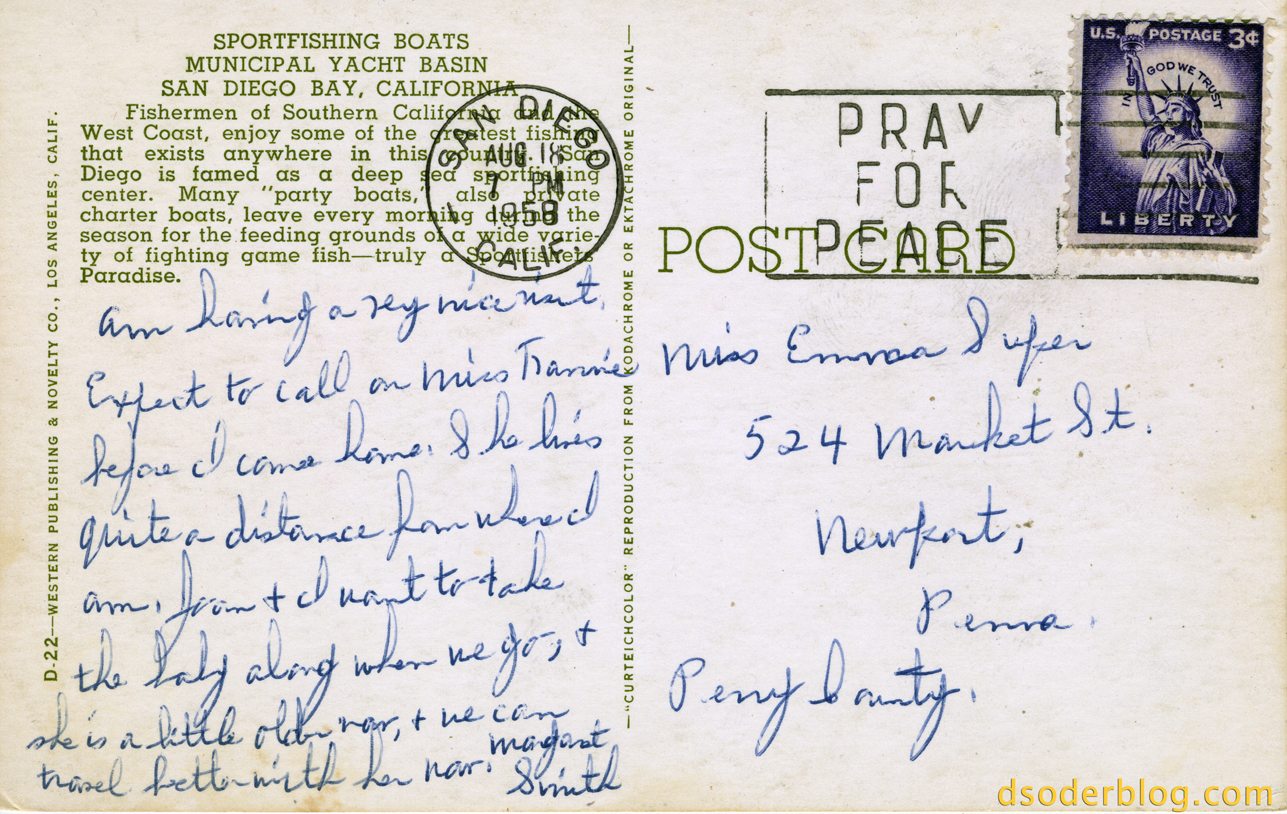 SPORTFISHING BOATS
MUNICIPAL YACHT BASIN
SAN DIEGO BAY, CALIFORNIA
Fishermen of Southern California and the
West Coast, enjoy some of the greatest fishing
that exists anywhere in this country. San
Diego is famed as a deep sea sportfishing
center. Many "party boats," also private
charter boats, leave every morning during the
season for the feeding grounds of a wide varie-
ty of fighting game fish—truly a Sportfishers
Paradise.
D-22—WESTERN PUBLISHING & NOVELTY CO., LOS ANGELES, CALIF.
am having a very nice visit.
Expect to call on Miss
before I come home. She lives
quite a distance from where I
am. Joan + I want to take
the baby along when we go, +
she is a little older now, + we can
travel better with her now.
Margaret
Smith
—"CURTEICHCOLOR" REPRODUCTION FROM KODACHROME OR EKTACHROME ORIGINAL—
SAN DIEGO
AUG 18
7 PM
1958
CALIF.
PRAY
FOR
PEACE
U.S. POSTAGE 3¢
IN GOD WE TRUST
LIBERTY
POST CARD
Miss Emma Super
524 Market St.
Newport,
Penna.
Perry County.
dsoderblog.com